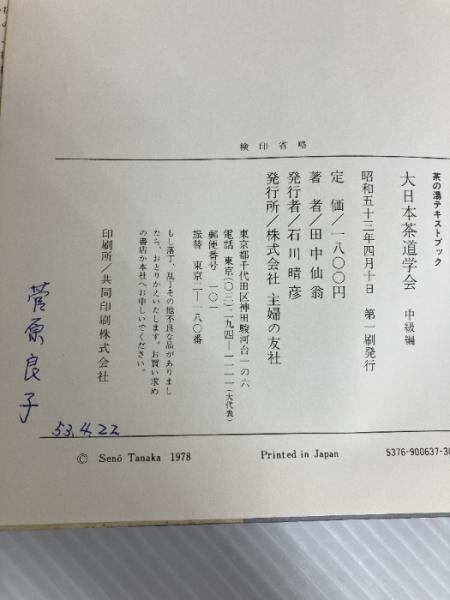 検印省略
茶の湯テキストブック
大日本茶道学会 中級編
昭和五十三年四月十日 第一刷発行
定 価/一八〇〇円
著 者/田中仙翁
発行者/石川晴彦
発行所/株式会社 主婦の友社
東京都千代田区神田駿河台一の六
電話 東京(〇三)二九四―一一一一(大代表)
郵便番号 一〇一
振替 東京二―一八〇番
もし落丁、乱丁その他不良な品がありまし
たら、おとりかえいたします。お買い求め
の書店か本社へお申しいでください。
印刷所/共同印刷株式会社
菅原良子
53.4.22
© Senō Tanaka 1978 Printed in Japan 5376-900637-30